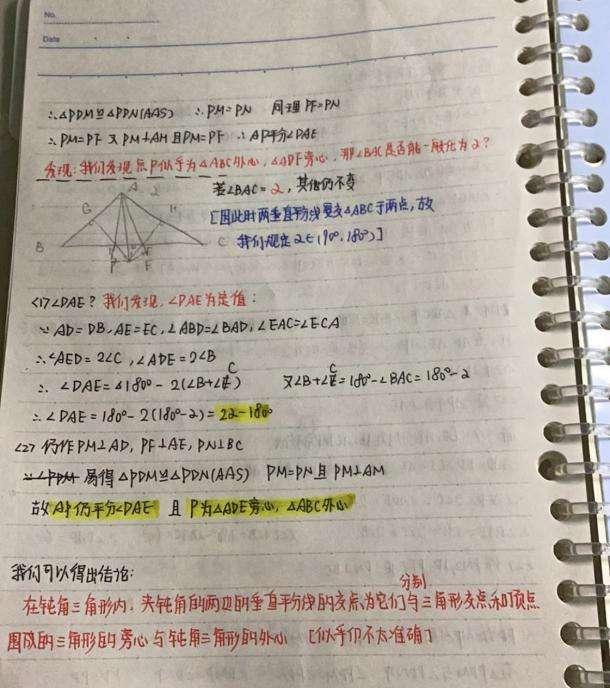 No.
Date
∴△PDM≌△PDN(AAS) ∴PM=PN 同理 PF=PN
∴PM=PF 又 PM⊥AM 且PM=PF ∴AP平分∠DAE
发现:我们发现点P似乎为△ABC外心,△ADF旁心,那∠BAC是否能一般化为2?
若∠BAC=2,其他仍不变
[因此时两垂直平分线要交△ABC于两点,故
我们规定2∈(90°,180°)]
A 2
G H
B C
P F
<1>∠DAE?我们发现,∠DAE为定值:
∵AD=DB,AE=EC,∠ABD=∠BAD,∠EAC=∠ECA
∴∠AED=2∠C,∠ADE=2∠B
∴∠DAE=180°-2(∠B+∠C) 又∠B+∠C=180°-∠BAC=180°-2
∴∠DAE=180°-2(180°-2)=22-180°
<2>仍作PM⊥AD,PF⊥AE,PN⊥BC
易得△PDM≌△PDN(AAS) PM=PN且PM⊥AM
故AP仍平分∠DAE 且P为△ADE旁心,△ABC外心
我们可以得出结论:
分别
在钝角三角形内,夹钝角的两边的垂直平分线的交点为它们与三角形交点和顶点
围成的三角形的旁心与钝角三角形的外心 [似乎仍不太准确]